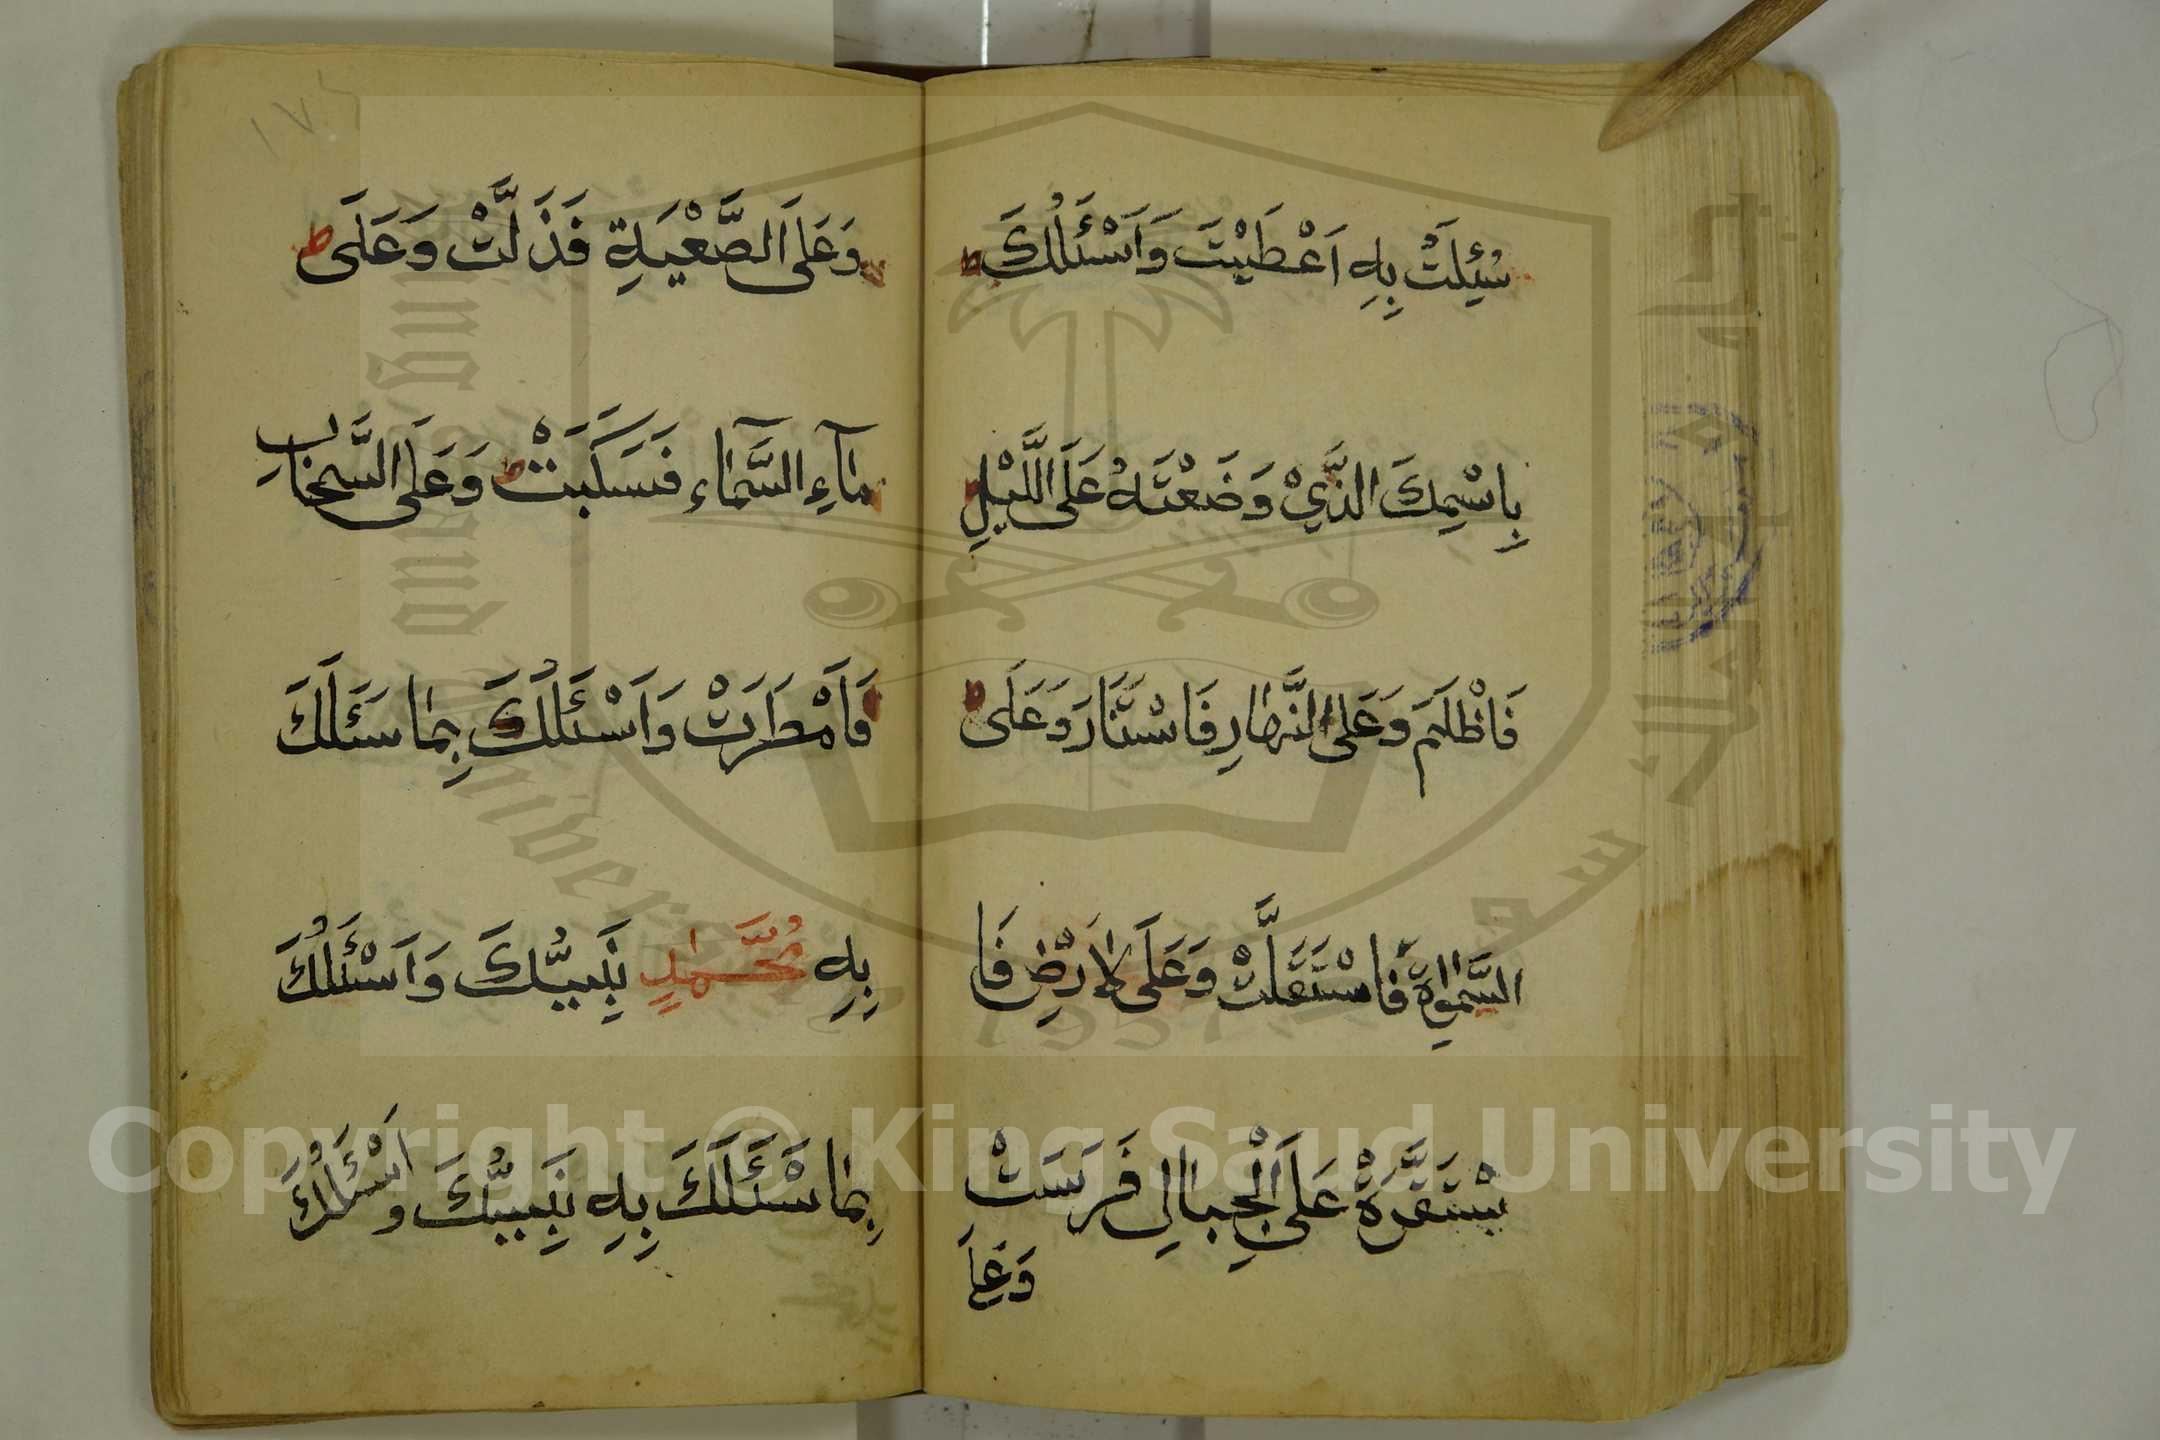 سُئِلَتْ بِهِ اَعْطَيْتَ وَاَسْئَلُكَ
بِاسْمِكَ الَّذِيْ وَضَعْتَهُ عَلَى اللَّيْلِ
فَاظْلَمَ وَعَلَى النَّهَارِ فَاسْتَنَارَ وَعَلَى
السَّمٰوَاةِ فَاسْتَقَلَّتْ وَعَلَى الاَرْضِ فَا
سْتَقَرَّةْ عَلَى الْجِبَالِ فَرَسَتْ
وَعَلَى
وَعَلَى الصَّعْيَةِ فَذَلَّتْ وَعَلَى
مَآءِ السَّمَآءِ فَسَكَبَتْ وَعَلَى السَّحَابِ
فَاَمْطَرَتْ وَاَسْئَلُكَ بِمَا سَئَلَكَ
بِهِ مُحَمَّدٍ نَبِيُّكَ وَاَسْئَلُكَ
بِمَا سَئَلَكَ بِهِ نَبِيُّكَ وَاَسْئَلُكَ
١٧
Copyright © King Saud University
1957